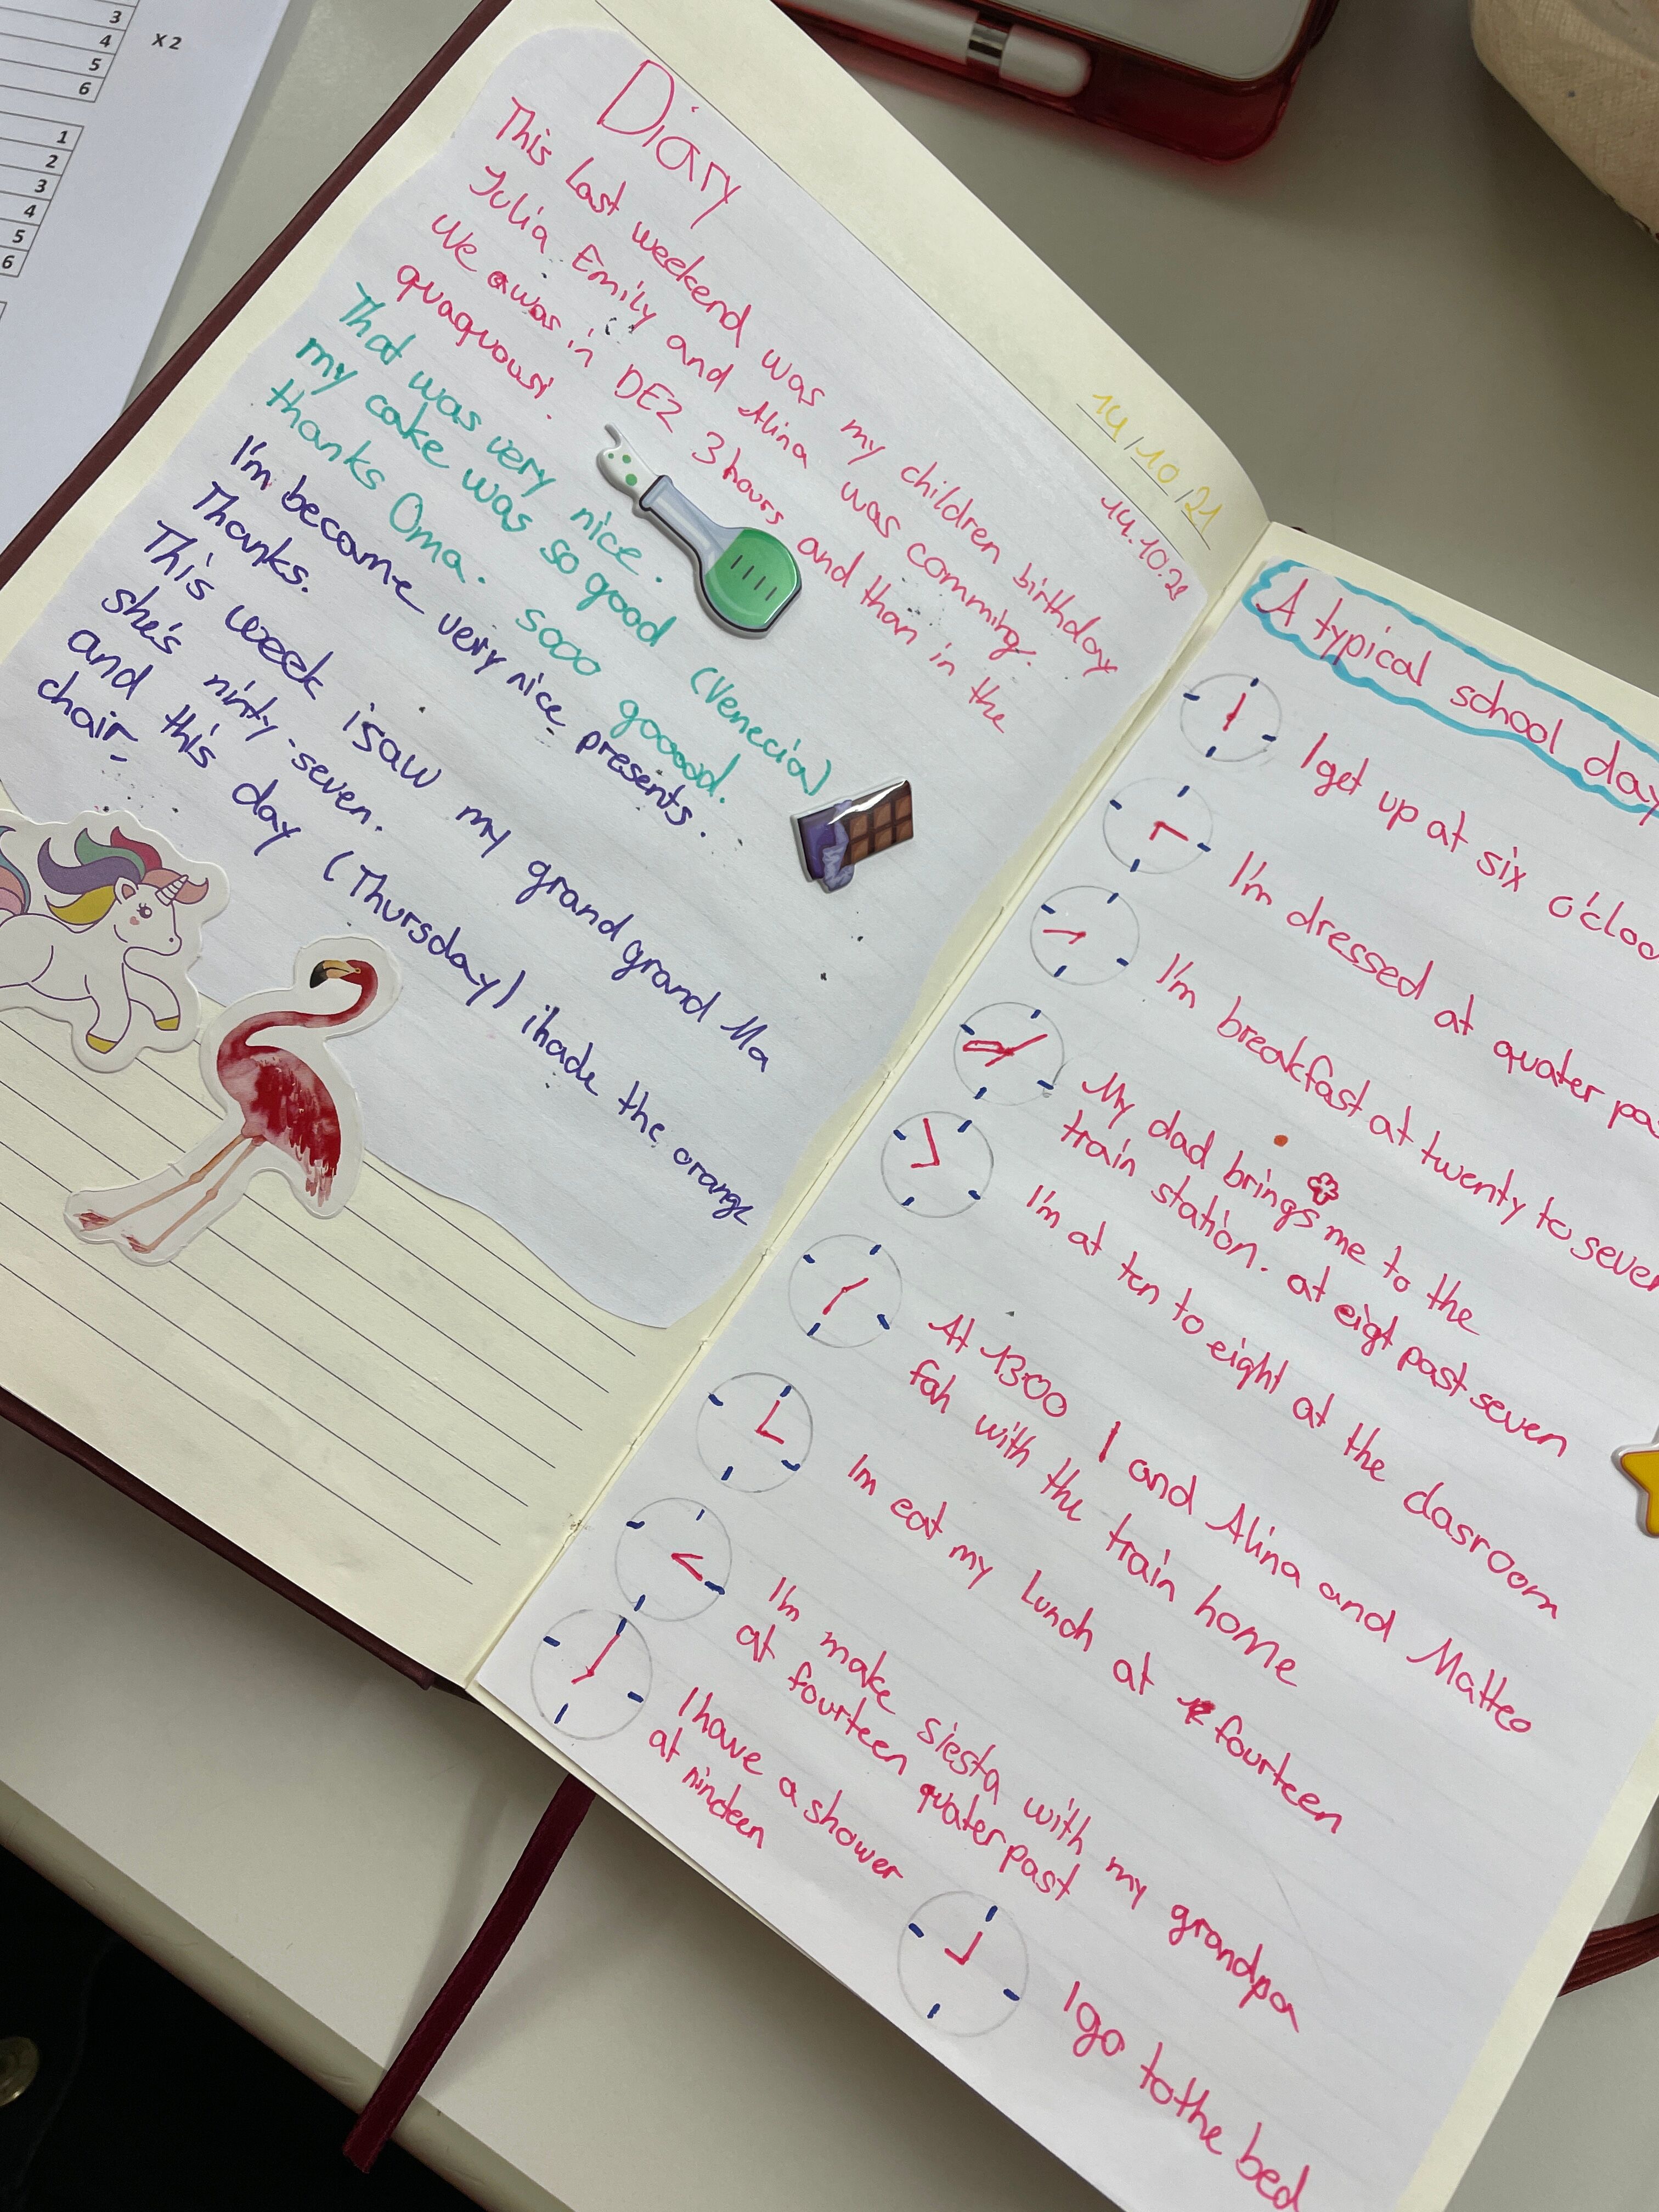 3
4
5
6
X 2
1
2
3
4
5
6
14/10/21
Diary
This last weekend was my children birthday
Julia Emily and Alina was comming.
We was in DEZ 3 hours and than in the
quaquousi.
That was very nice.
my cake was so good (Venecia)
thanks Oma. sooo gooood.
I'm become very nice presents.
Thanks.
This week i saw my grand grand Ma
she's ninty-seven.
and this day (Thursday) i hade the orange
chair
A typical school day
I get up at six o'cloc
I'm dressed at quater pa
I'm breakfast at twenty to seven
My dad brings me to the
train station. at eigt past seven
I'm at ten to eight at the clasroom
At 1300 I and Alina and Matteo
fah with the train home
Im eat my Lunch at fourteen
I'm make siesta with my grandpa
at fourteen quater past
I have a shower
at nindeen
I go to the bed